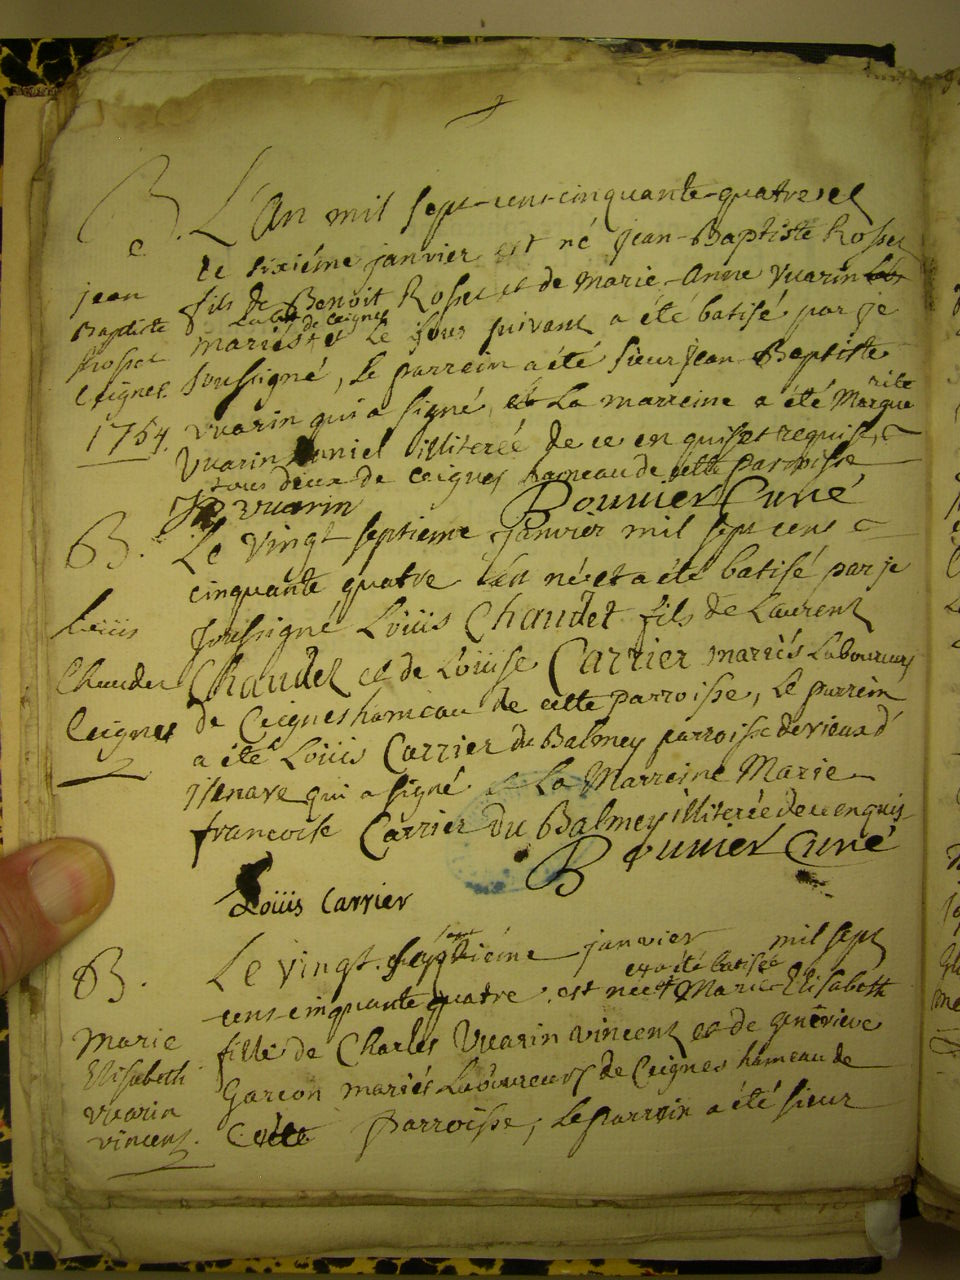 B. L'An mil sept-cens-cinquante-quatre et
le sixiéme janvier est né jean-Baptiste Rosset
jean
fils de Benoit Rosset et de marie-Anne vuarin
Baptiste
de Ceignes
mariés et le jour suivant a été batisé par je
Rosset
soussigné, Le parrein a été sieur jean Baptiste
Ceignes
vuarin qui a signé, et La marreine a été Margue
rite
1754.
vuarin illiterée de ce enquise et requise,
tous deux de Ceignes hameau de cette parroisse
vuarin Bouvier Curé
B. Le vingt septieme janvier mil sept cens
cinquante quatre est né et a été batisé par je
Loüis
soussigné Loüis Chaudet fils de Laurent
Chaudet
Chaudet et de Loüise Carrier mariés Laboureurs
Ceignes
de Ceignes hameau de cette parroisse, Le parrein
a été Loüis Carrier du Balmey parroisse de vieux d'
isenave qui a signé et La Marreine Marie
francoise Carrier du Balmey illiterée de ce enquis
Bouvier Curé
Loüis Carrier
B. Le vingt janvier mil sept
et a été batisée
cens-cinquante quatre est née Marie-Elisabeth
Marie
fille de Charles Vuarin vincent et de genevieve
Elisabeth
Garcon mariés Laboureurs de Ceignes hameau de
vuarin
Cette parroisse, Le parrein a été sieur
vincent.